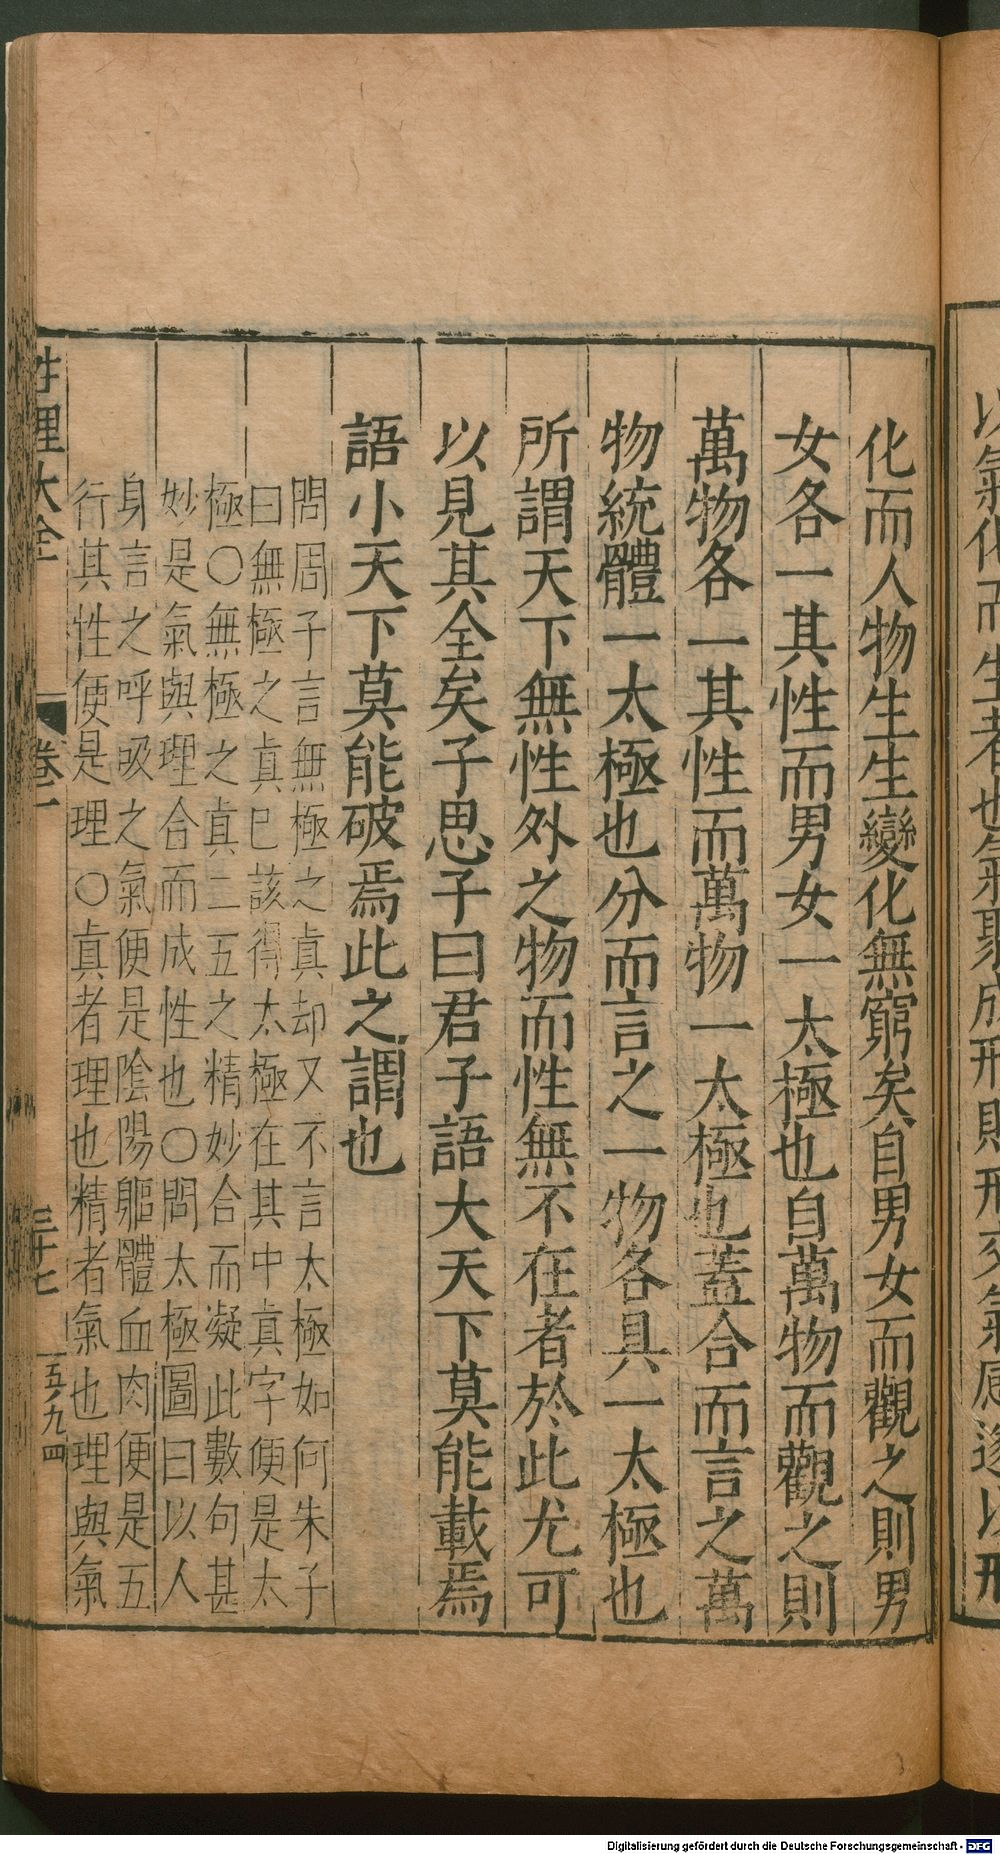 以氣化而生者也氣聚成形則形交氣感遂以形
化而人物生生變化無窮矣自男女而觀之則男
女各一其性而男女一太極也自萬物而觀之則
萬物各一其性而萬物一太極也蓋合而言之萬
物統體一太極也分而言之一物各具一太極也
所謂天下無性外之物而性無不在者於此尤可
以見其全矣子思子曰君子語大天下莫能載焉
語小天下莫能破焉此之謂也
問周子言無極之真却又不言太極如何朱子
曰無極之真已該得太極在其中真字便是太
極〇無極之真二五之精妙合而凝此數句甚
妙是氣與理合而成性也〇問太極圖曰以人
身言之呼吸之氣便是陰陽軀體血肉便是五
行其性便是理〇真者理也精者氣也理與氣
性理大全 卷一 三十七 五ノ九四
Digitalisierung gefördert durch die Deutsche Forschungsgemeinschaft - DFG